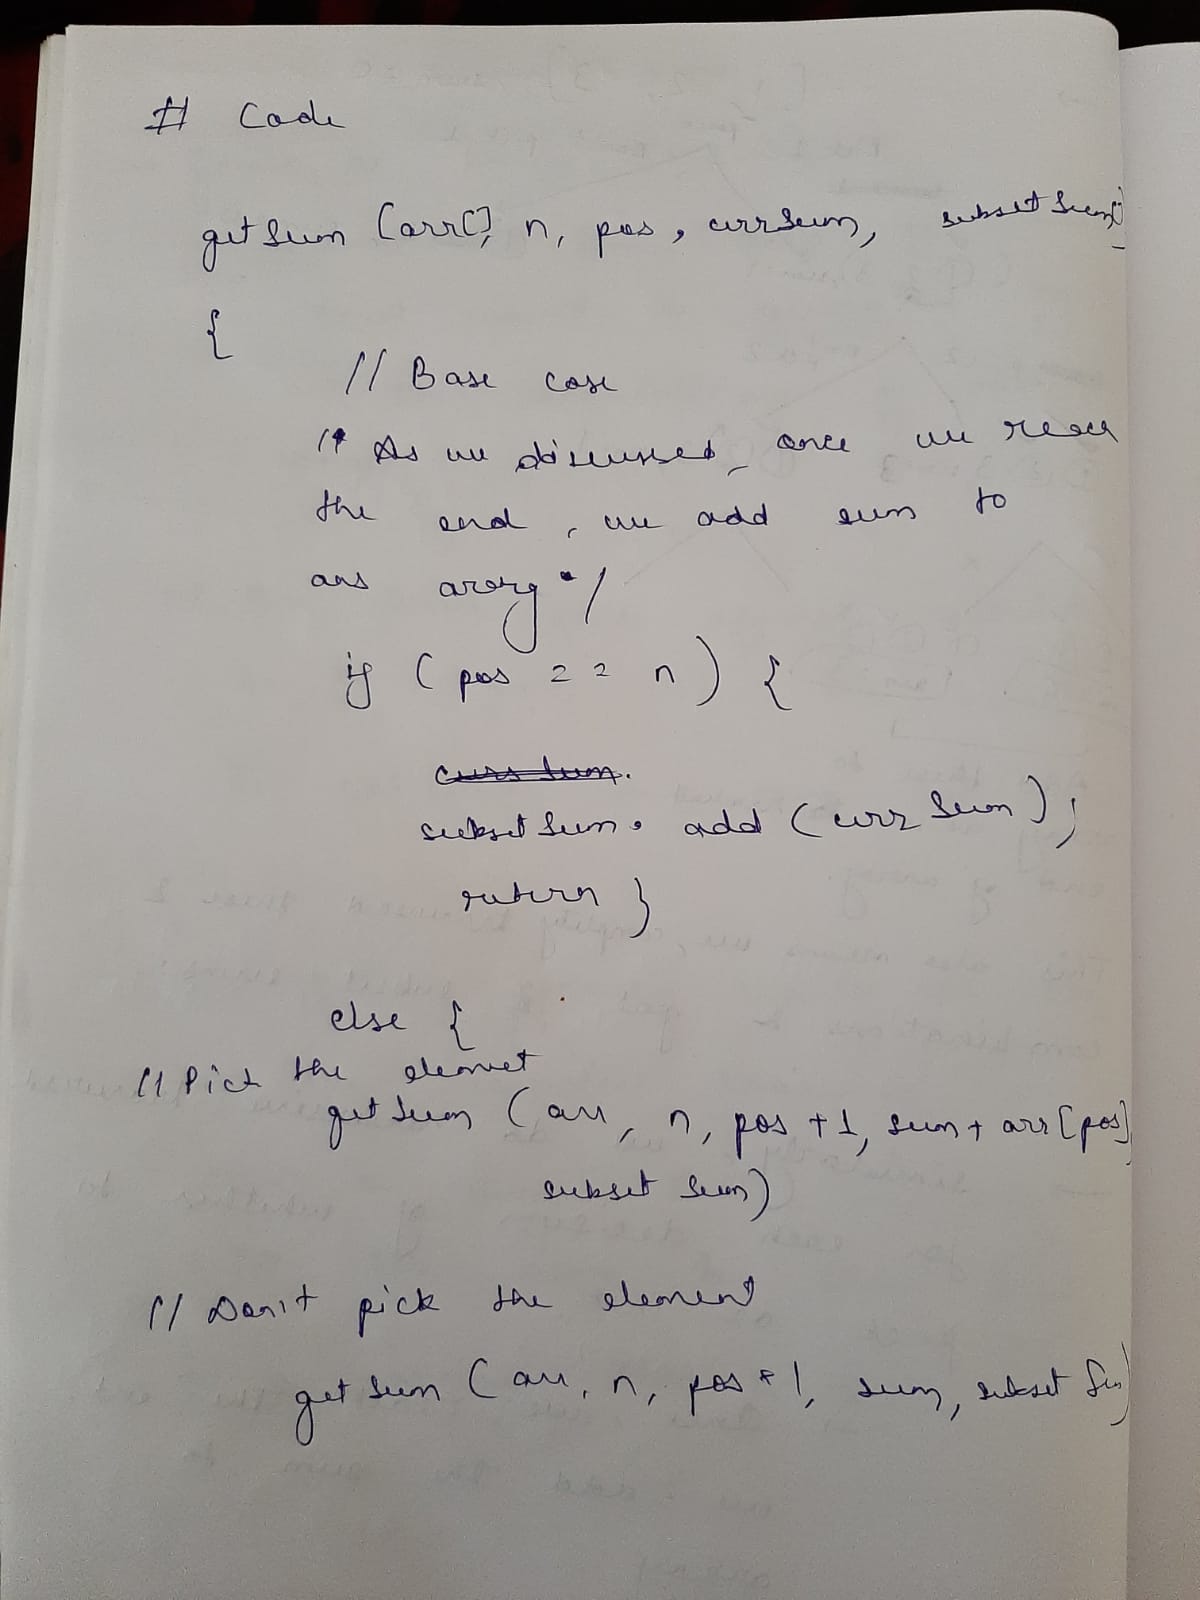 # Code
getSum (arr[], n, pos, currSum, subsetSum)
{
// Base case
/* As we discussed, once we reach
the end, we add sum to
ans array */
if (pos == n) {
subsetSum. add (curr Sum);
return }
else {
// Pick the element
getSum (arr, n, pos +1, sum + arr [pos],
subset Sum)
// Don't pick the element
getSum (arr, n, pos + 1, sum, subset Sum)